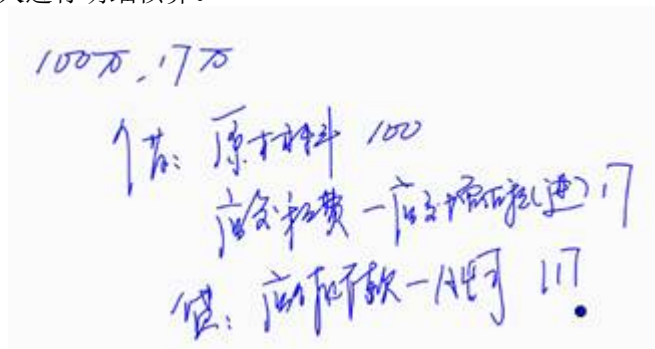 100万,17万
借：原材料 100
应交税费—应交增值税(进) 17
贷：应付账款—A公司 117